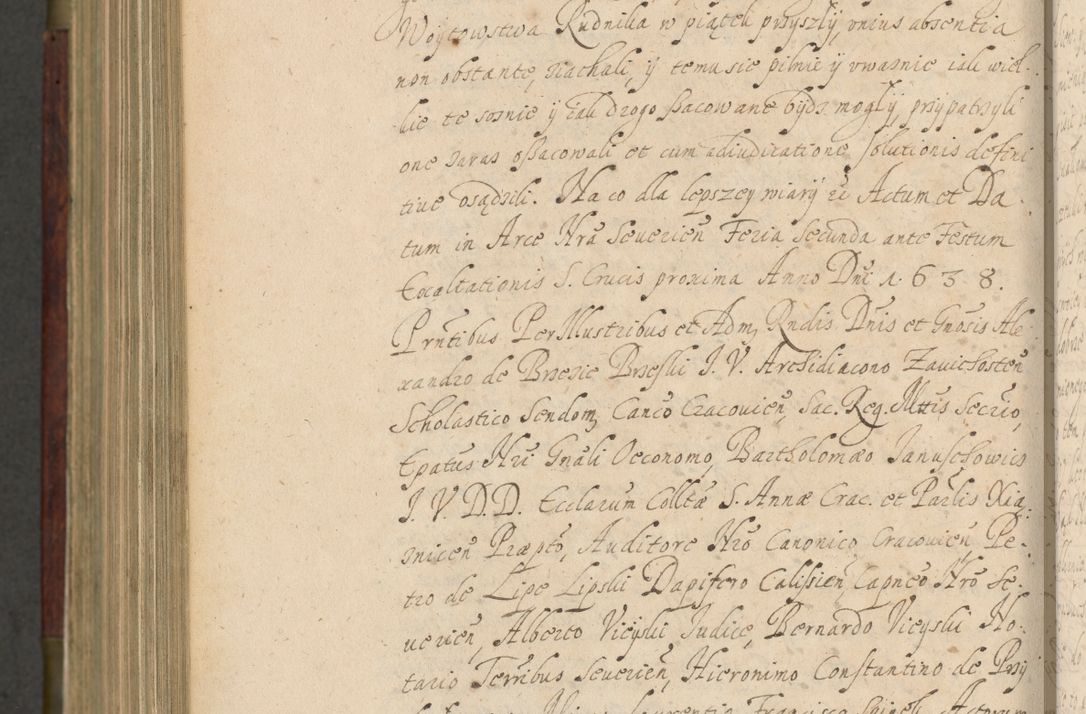 Woÿtowstwa Rudnika w piątek przyszlÿ, unius absentia
non obstante, ziachali, ÿ temu sie pilnie ÿ vwaznie iak wiel-
kie te sosnie ÿ iak drogo szacowane bydz moglÿ, przypatrzyli
one zaras oszacowali et cum adiudicatione solutionis defini
tiue osądzili. Na co dla lepszey wiarÿ etc Actum et Da-
tum in Arce Nrã Seuerien̄ Feria Secunda ante Festum
Exaltationis S. Crucis proxima Anno Dni 1638.
Prn̄tibus Per Illustribus et Adm, Rndis Dn̄is et Gn̄osis Ale
xandro de Brzezie Brzeski I. V. Archidiacono Zauichosten̄
Scholastico Sendom, Canco Cracouien̄, Sac. Reg. Mttis Secrio,
Epatus Nri Gn̄ali Oeconomo, Bartholomæo Januschowics
I. V. D. D. Ecclarum Colltæ S. Annæ Crac. et Parlis Xia-
znicen̄ Præpto, Auditore Nro Canonico Cracouien̄, Pe-
tro de Lipe Lipski Dapifero Calissien̄, Capneo Nro Se-
uerien̄, Alberto Vieÿski Judice, Bernardo Vieyski No-
tario Terribus Seuerien̄, Hieronimo Constantino de Przÿ
Laurentio Francisco Actorum